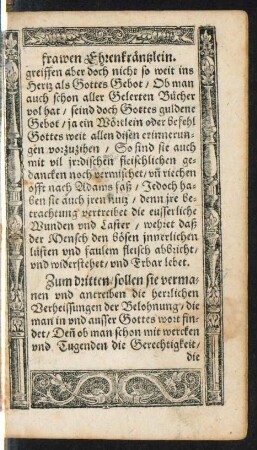 frawen Ehrenkräntzlein.
greiffen aber doch nicht so weit ins
Hertz als Gottes Gebot / Ob man
auch schon aller Gelerten Bücher
vol hat / seind doch Gottes guldene
Gebot / ja ein Wörtlein oder befehl
Gottes weit allen disen erinnerun-
gen vorzuzihen / So sind sie auch
mit vil jrrdischen fleischlichen ge-
dancken noch vermischet / vñ riechen
offt nach Adams faß / Jedoch ha-
ben sie auch jren nutz / denn jre be-
trachtung vertreibet die eusserliche
Wunden vnd Laster / wehret daß
der Mensch den bösen jnnerlichen
lüsten vnd faulem fleisch abbricht
vnd widerstehet / vnd Erbar lebet.
Zum dritten / sollen sie verma-
nen vnd antreiben die herrlichen
Verheissungen der Belohnung / die
man in vnd ausser Gottes wort fin-
det / Deñ ob man schon mit wercken
vnd Tugenden die Gerechtigkeit /
die